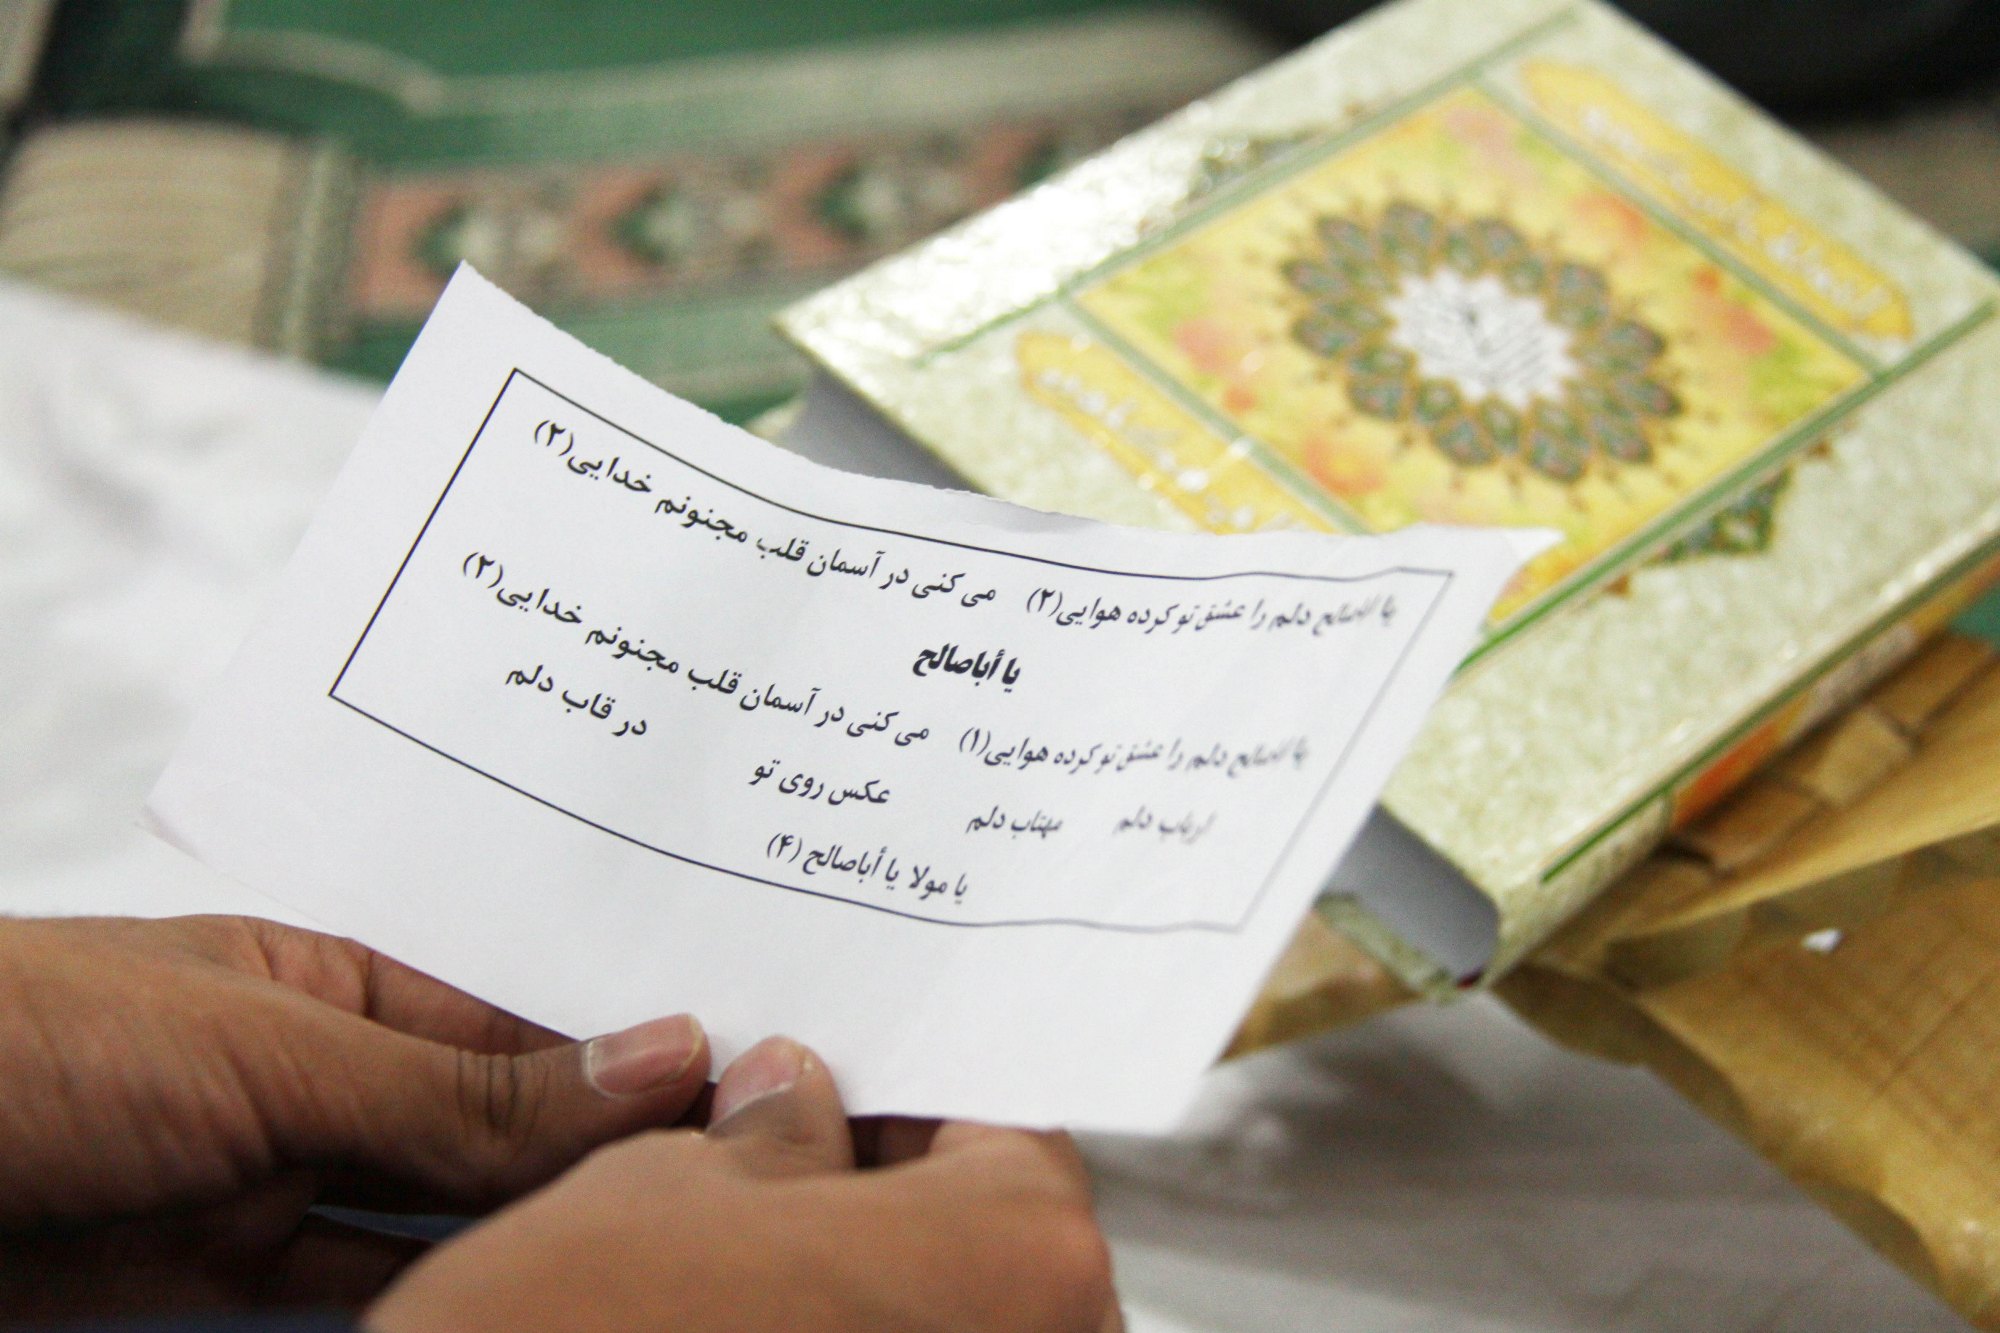 یا اباصالح دلم را عشق تو کرده هوایی(۲) می کنی در آسمان قلب مجنونم خدایی(۲)
یا أباصالح
یا اباصالح دلم را عشق تو کرده هوایی(۱) می کنی در آسمان قلب مجنونم خدایی(۲)
ارباب دلم مهتاب دلم عکس روی تو در قاب دلم
یا مولا یا أباصالح (۴)